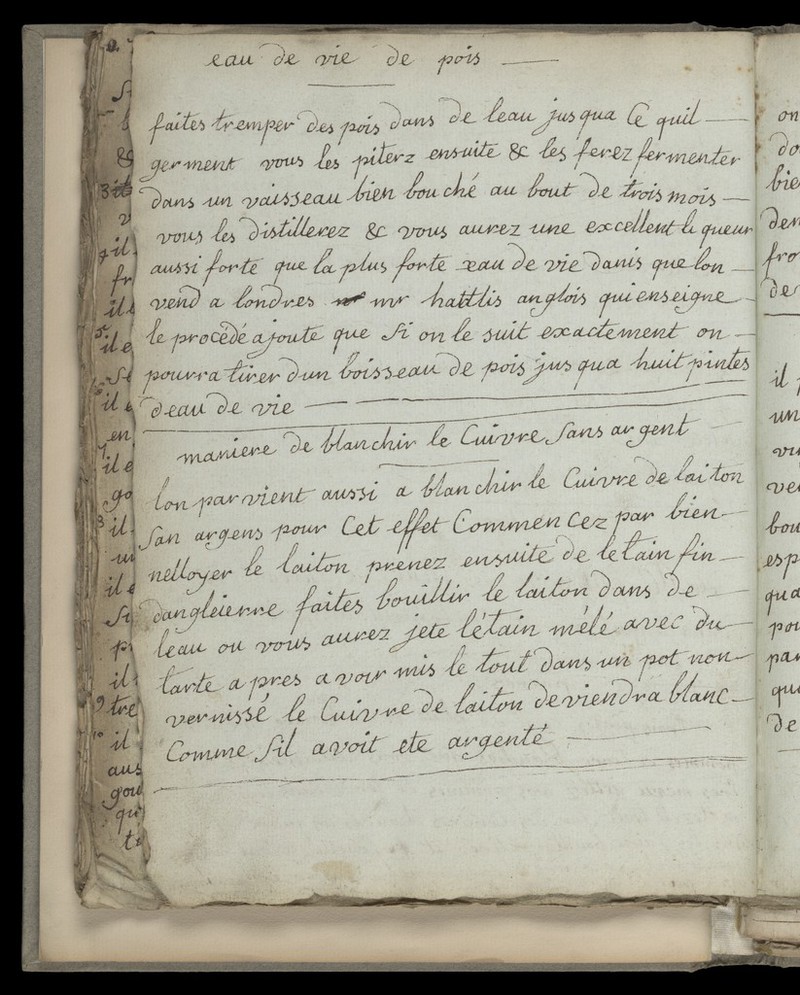 eau de vie de pois
faites tremper des pois dans de leau jusqua ce quil
germent vous les pilerz ensuite & les ferez fermenter
dans un vaisseau bien bouché au bout de trois mois
vous les distillerez & vous aurez une excellent li queur
aussi forte que la plus forte eau de vie danis que lon
vend a londres mr hattlis anglois qui enseigne
le procédé ajoute que si on le suit exactement on
pourra tirer dun boisseau de pois jusqua huit pintes
deau de vie
maniere de blanchir le Cuivre sans argent
lon parvient aussi a blanchir le Cuivre de laiton
san argens pour Cet effet Commencez par bien
nelloyer le laiton prenez ensuite de letain fin
dangleierre faites bouillir le laiton dans de
leau ou vous aurez jete létain mélé avec du
tarte apres avoir mis le tout dans un pot non
vernissé le Cuivre de laiton deviendra blanc
Comme sil avoit ete argenté